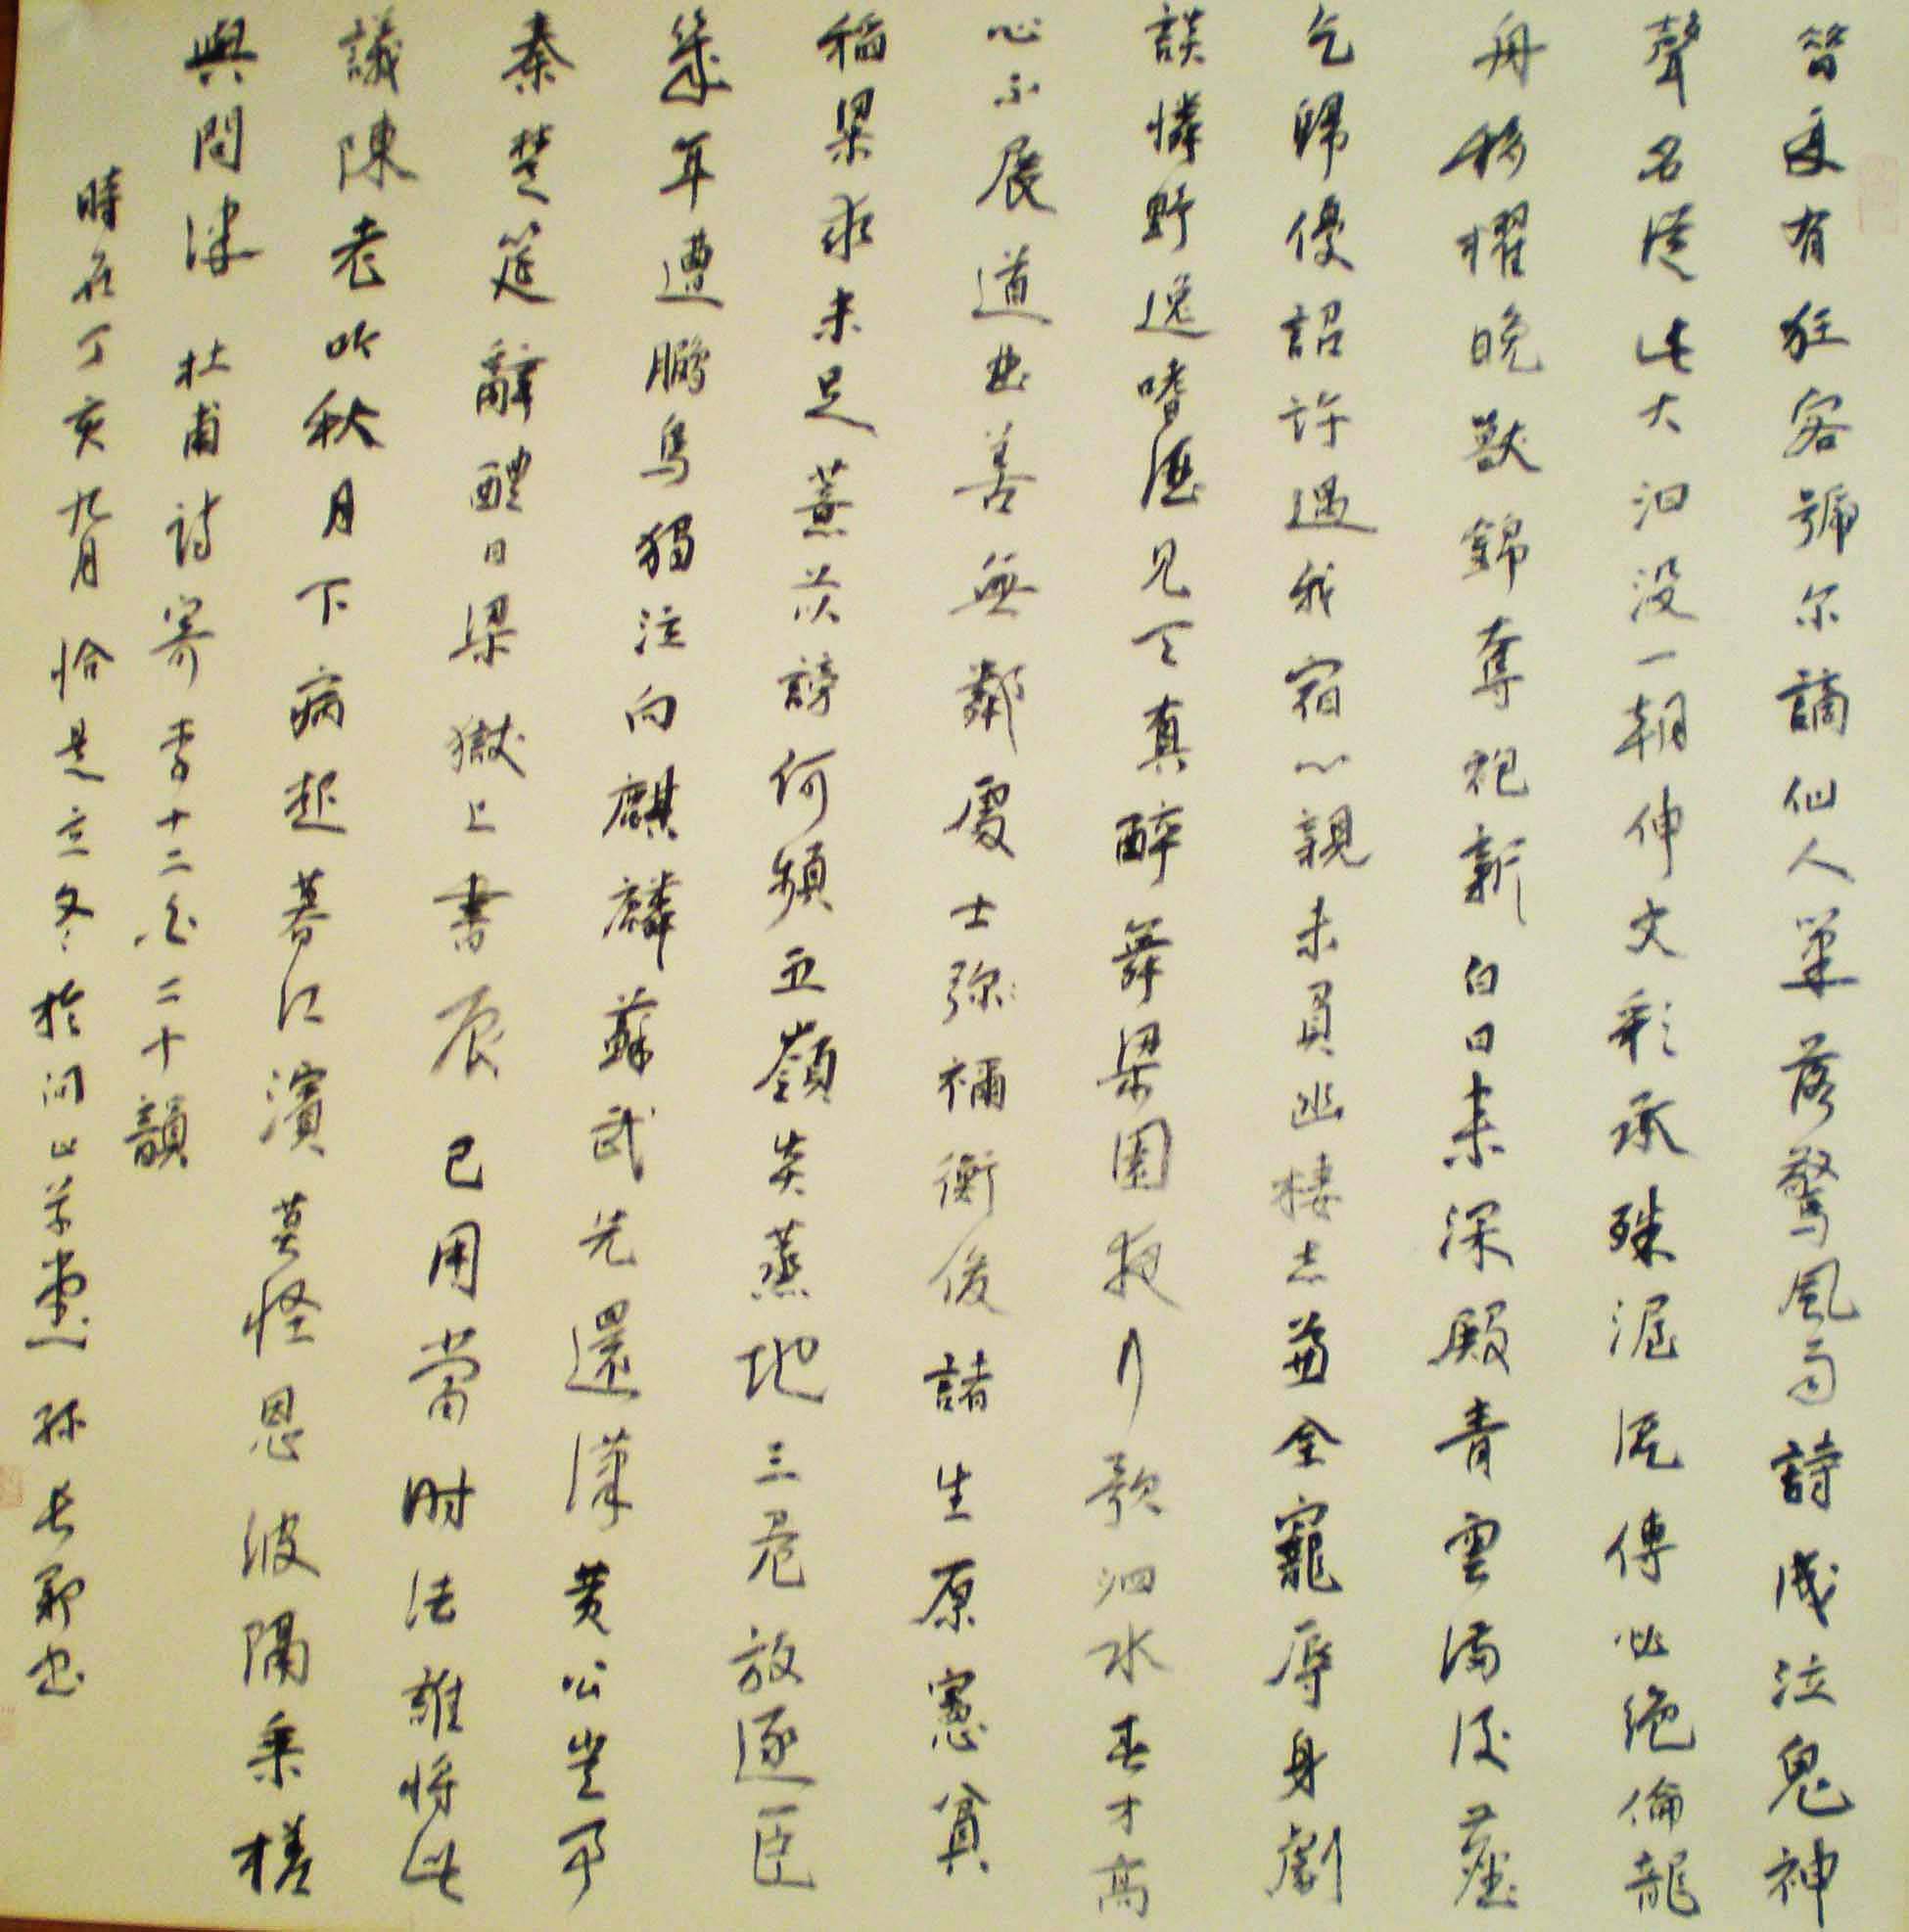 昔年有狂客號尔謫仙人筆落驚風雨詩成泣鬼神
聲名從此大汩没一朝伸文彩承殊渥流傳必絶倫龍
舟移櫂晚獸錦奪袍新白日来深殿青雲滿後塵
乞歸優詔許遇我宿心親未負幽棲志兼全寵辱身劇
談憐野逸嗜酒見天真醉舞梁園夜行歌泗水春才高
心不展道屈善無鄰處士弥禰衡俊諸生原憲貧
稻梁求未足薏苡謗何頻五嶺炎蒸地三危放逐臣
幾年遭鵩鳥獨泣向麒麟蘇武先還漢黄公豈事
秦楚筵辭醴日梁獄上書辰已用當时法誰将此
議陳老吟秋月下病起暮江濱莫怪恩波隔乘槎
與問津 杜甫詩寄李十二白二十韻
時在丁亥九月恰是立冬於问草堂 孫長書